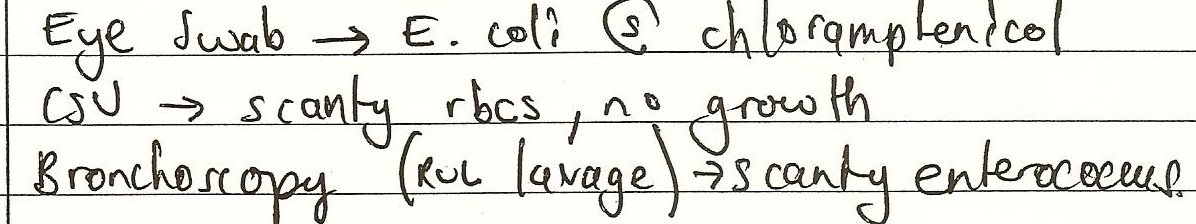 Eye swab → E. coli Ⓢ chloramphenicol
CSU → scanty rbcs, no growth
Bronchoscopy (RUL lavage) → scanty enterococcus.